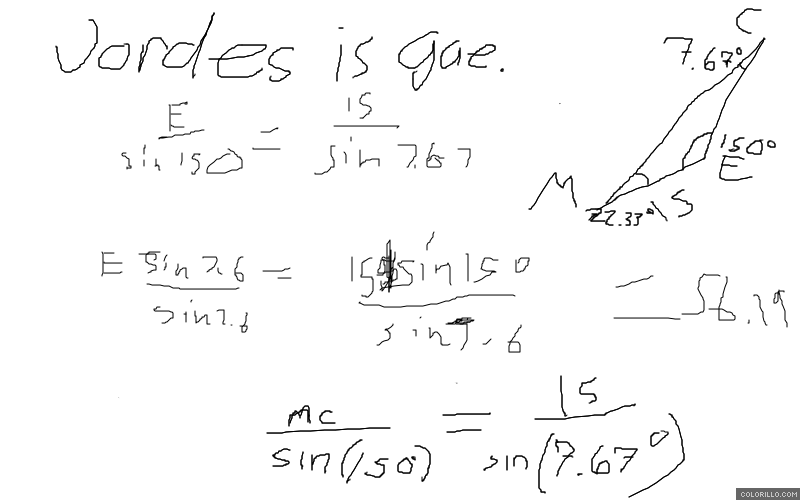 Jordes is gae.
C
7.67°
E
sin 150
=
15
sin 7.67
150°
E
M
22.33°
15
E sin 7.6
sin 7.6
=
15 sin 150
sin 7.6
= 56.19
MC
sin(150)
=
15
sin(7.67°)
COLORILLO.COM